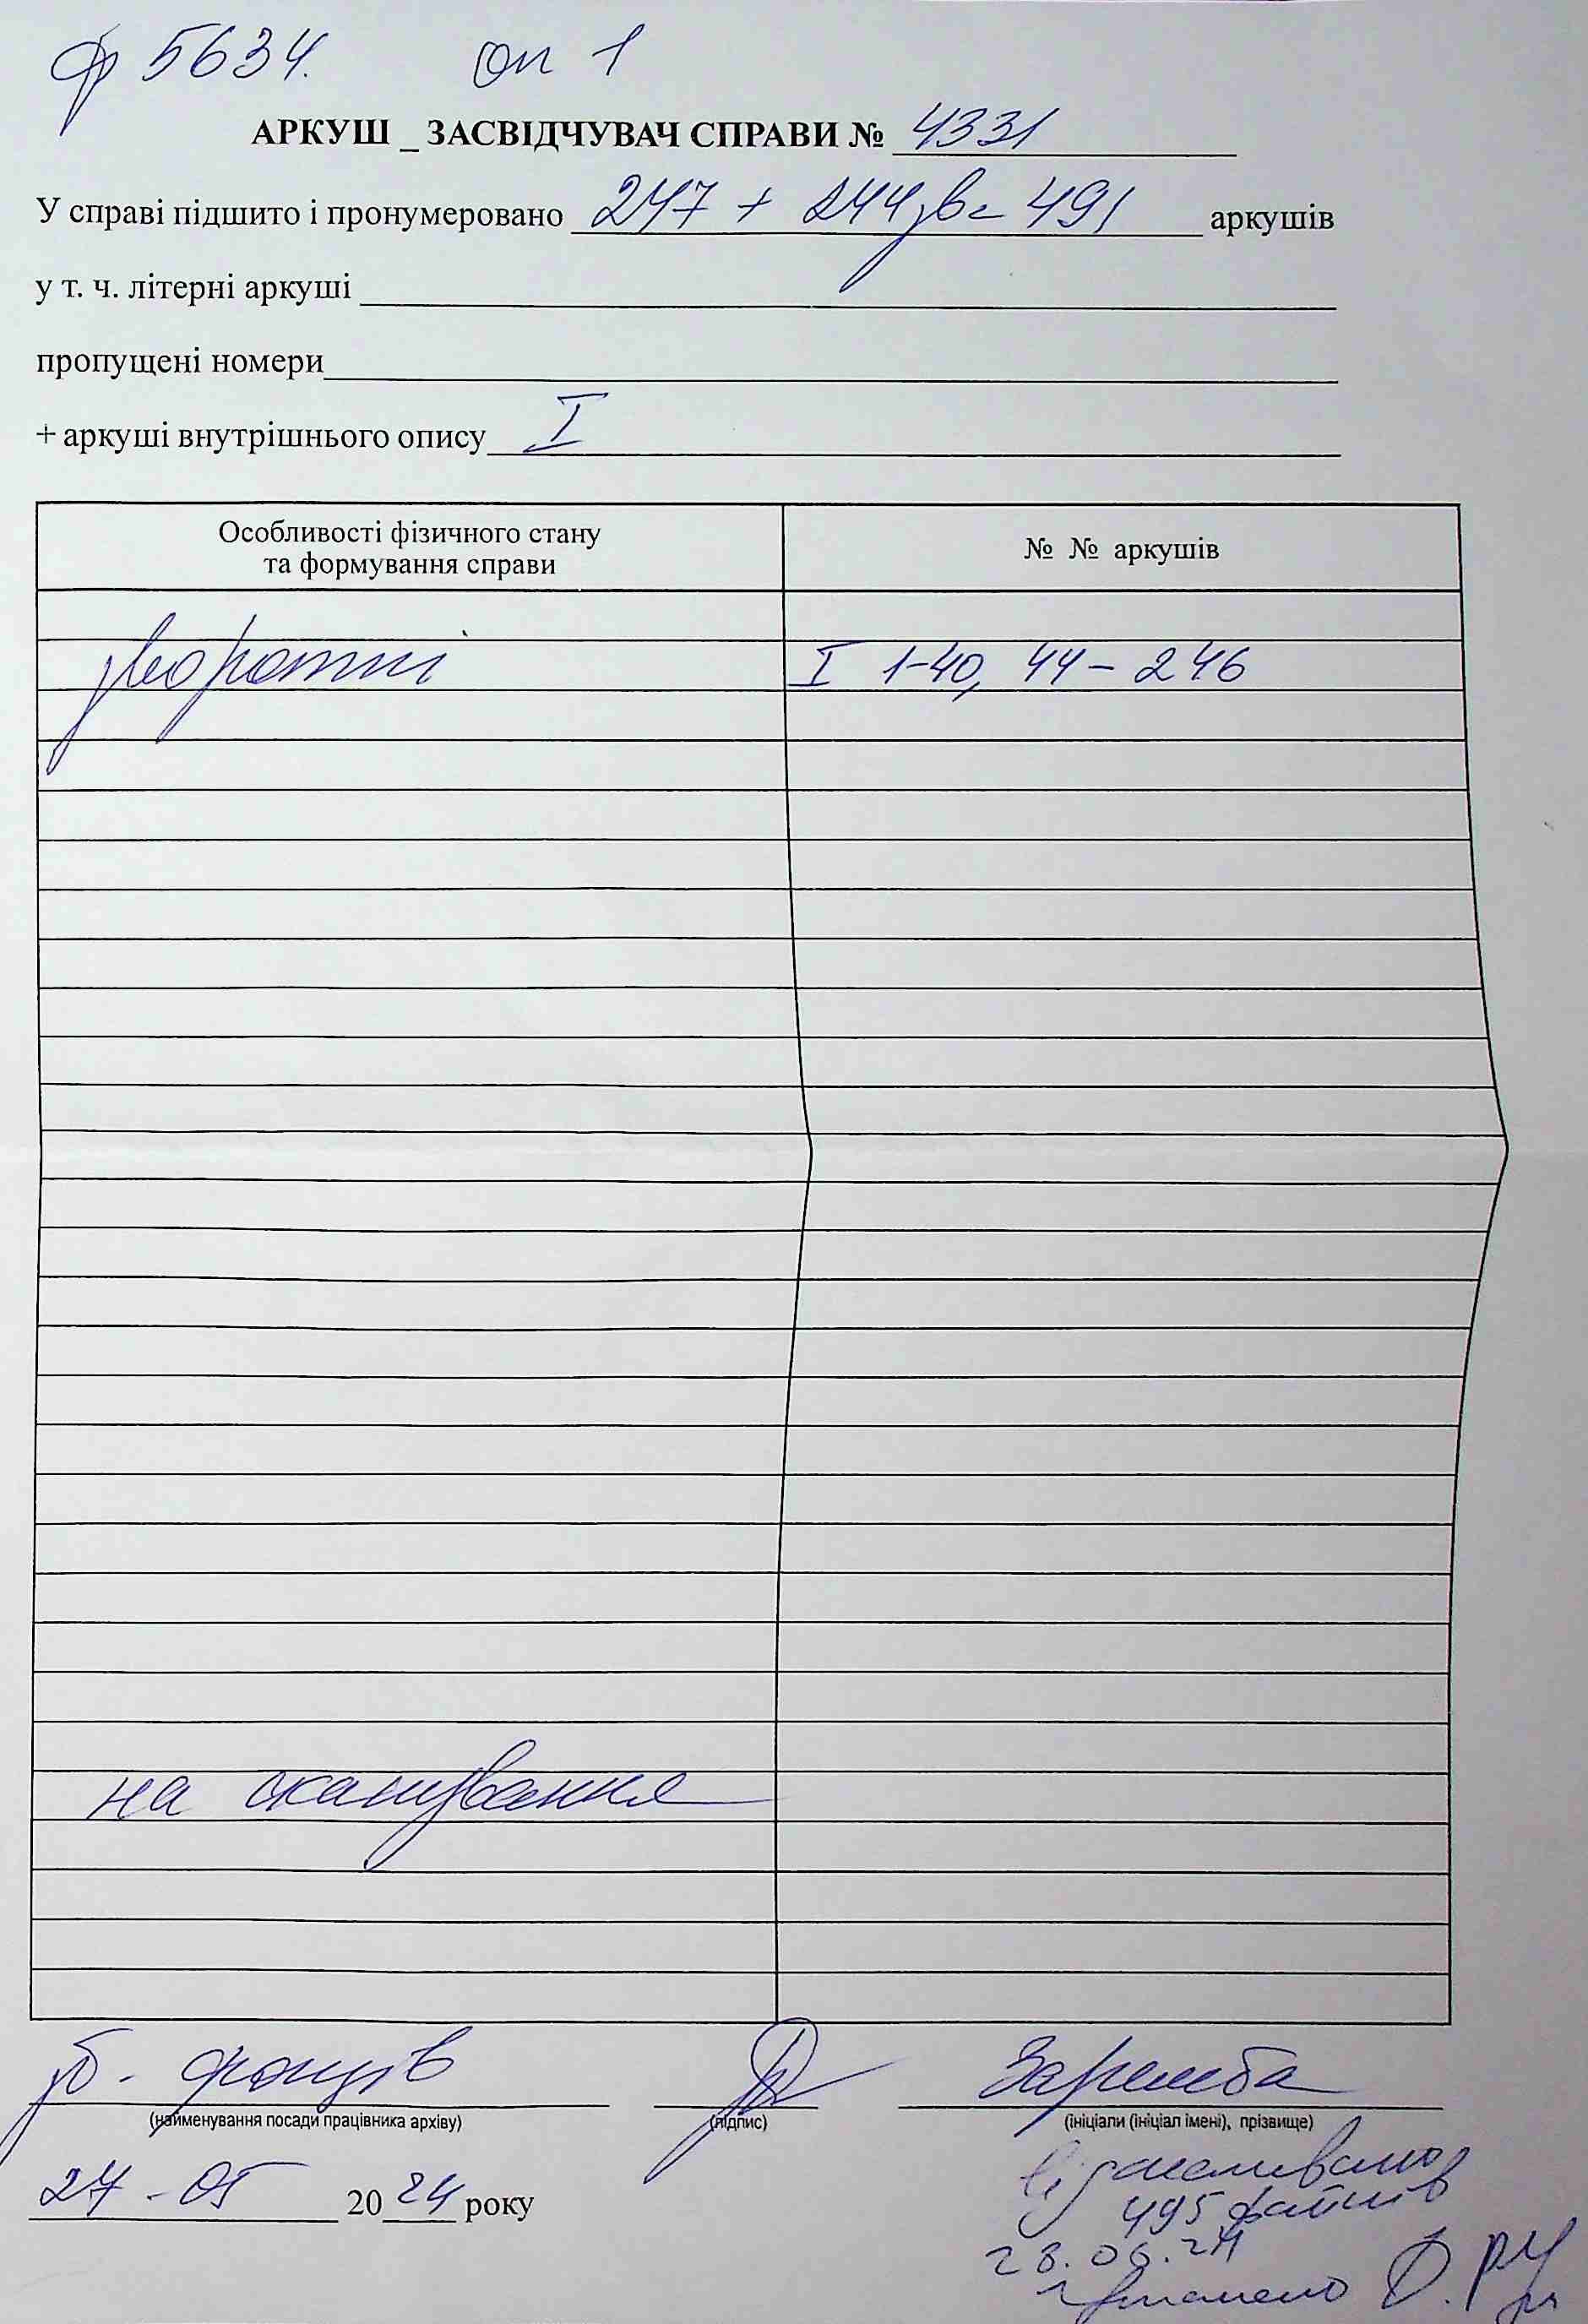 ф 5634. оп 1
АРКУШ _ ЗАСВІДЧУВАЧ СПРАВИ № 4331
У справі підшито і пронумеровано 247 + 244 зв = 491 аркушів
у т. ч. літерні аркуші
пропущені номери
+ аркуші внутрішнього опису I
Особливості фізичного стану
та формування справи
№ № аркушів
зворотні I 1-40, 44 - 246
на сканування
зб. фондів Заремба
(найменування посади працівника архіву) (підпис) (ініціали (ініціал імені), прізвище)
27 - 05 2024 року
Відскановано
495 файлів
28.06.24